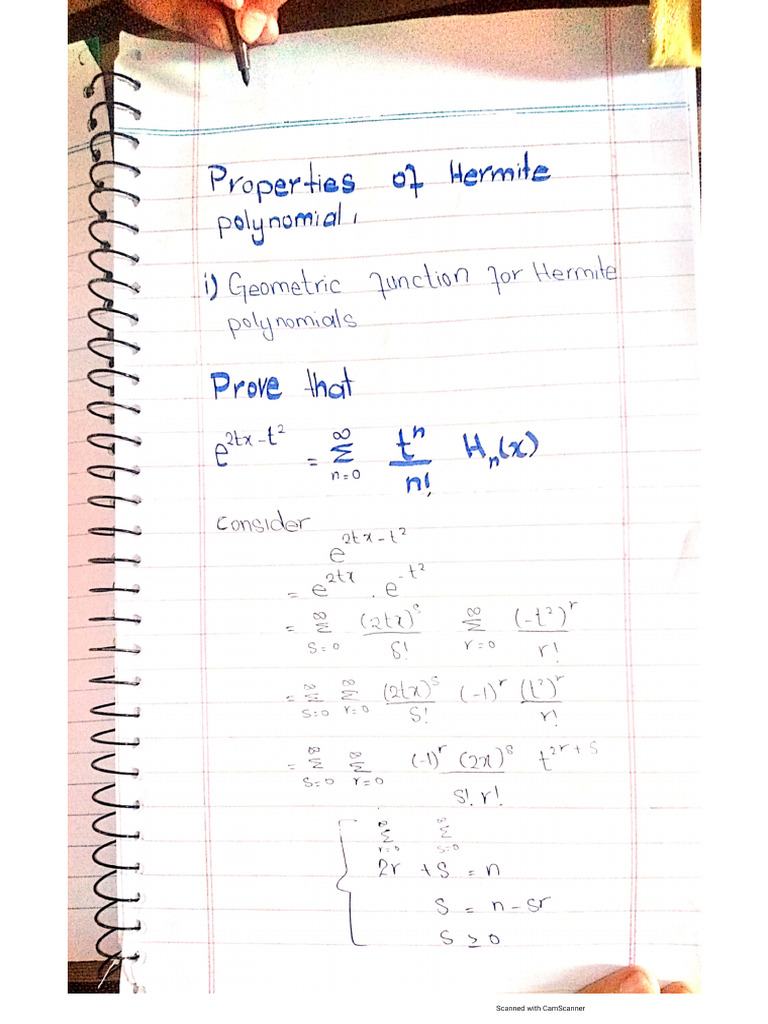 Properties of Hermite
polynomial,
i) Geometric function for Hermite
polynomials
Prove that
e^{2tx-t^2} = Σ_{n=0}^{∞} t^n/n! H_n(x)
Consider
e^{2tx-t^2}
= e^{2tx} . e^{-t^2}
= Σ_{s=0}^{∞} (2tx)^s/s! Σ_{r=0}^{∞} (-t^2)^r/r!
= Σ_{s=0}^{∞} Σ_{r=0}^{∞} (2tx)^s/s! (-1)^r (t^2)^r/r!
= Σ_{s=0}^{∞} Σ_{r=0}^{∞} (-1)^r (2x)^s/s! r! t^{2r+s}
Σ_{r=0}^{∞} Σ_{s=0}^{∞}
2r + s = n
s = n - sr
s ≥ 0
Scanned with CamScanner